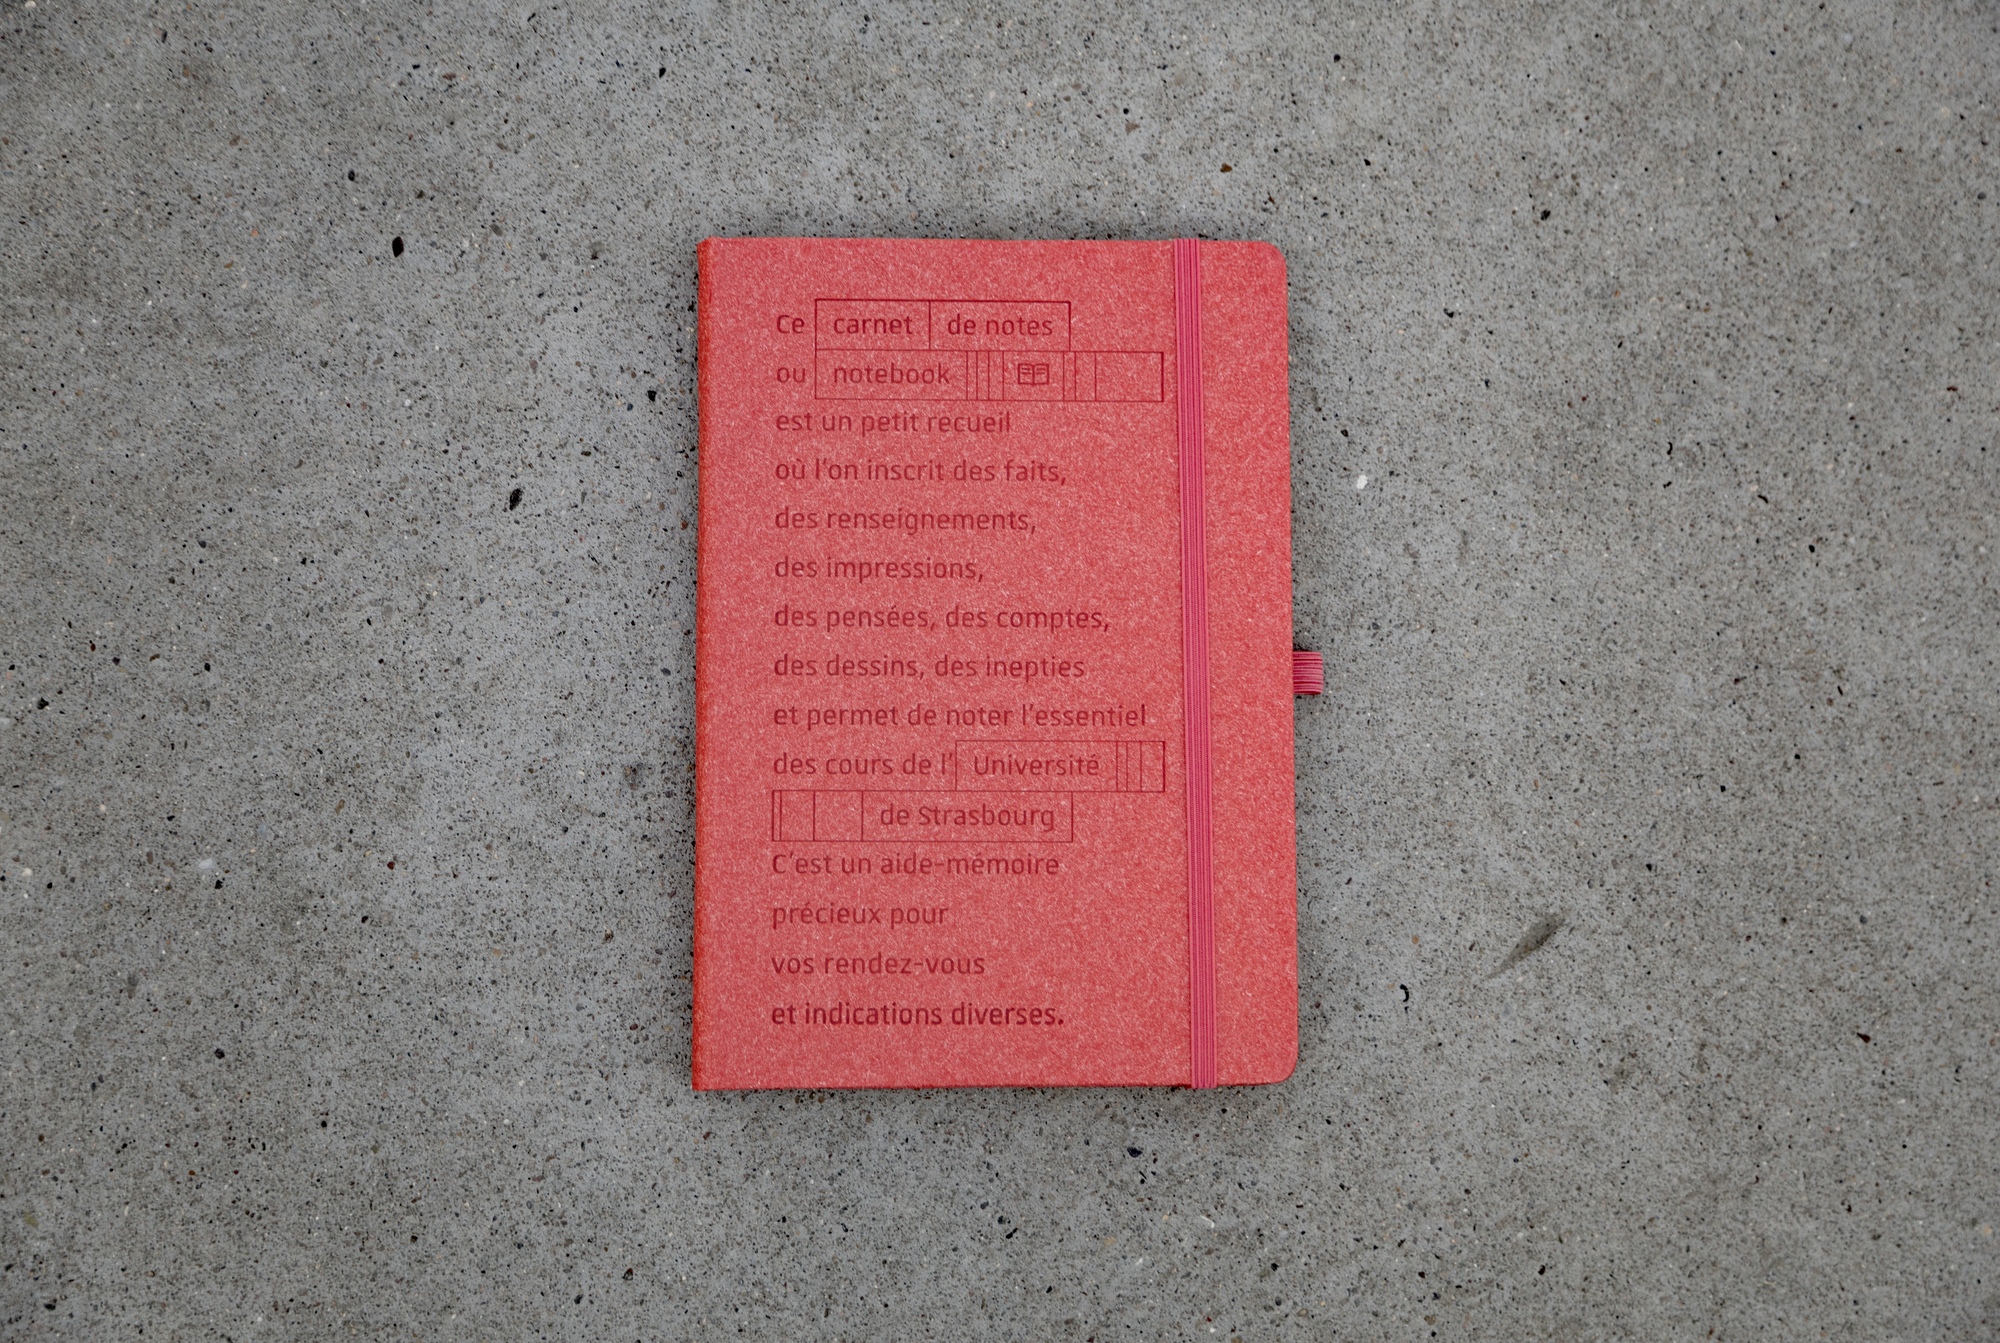 Ce carnet de notes
ou notebook
est un petit recueil
où l'on inscrit des faits,
des renseignements,
des impressions,
des pensées, des comptes,
des dessins, des inepties
et permet de noter l'essentiel
des cours de l'Université
de Strasbourg
C'est un aide-mémoire
précieux pour
vos rendez-vous
et indications diverses.